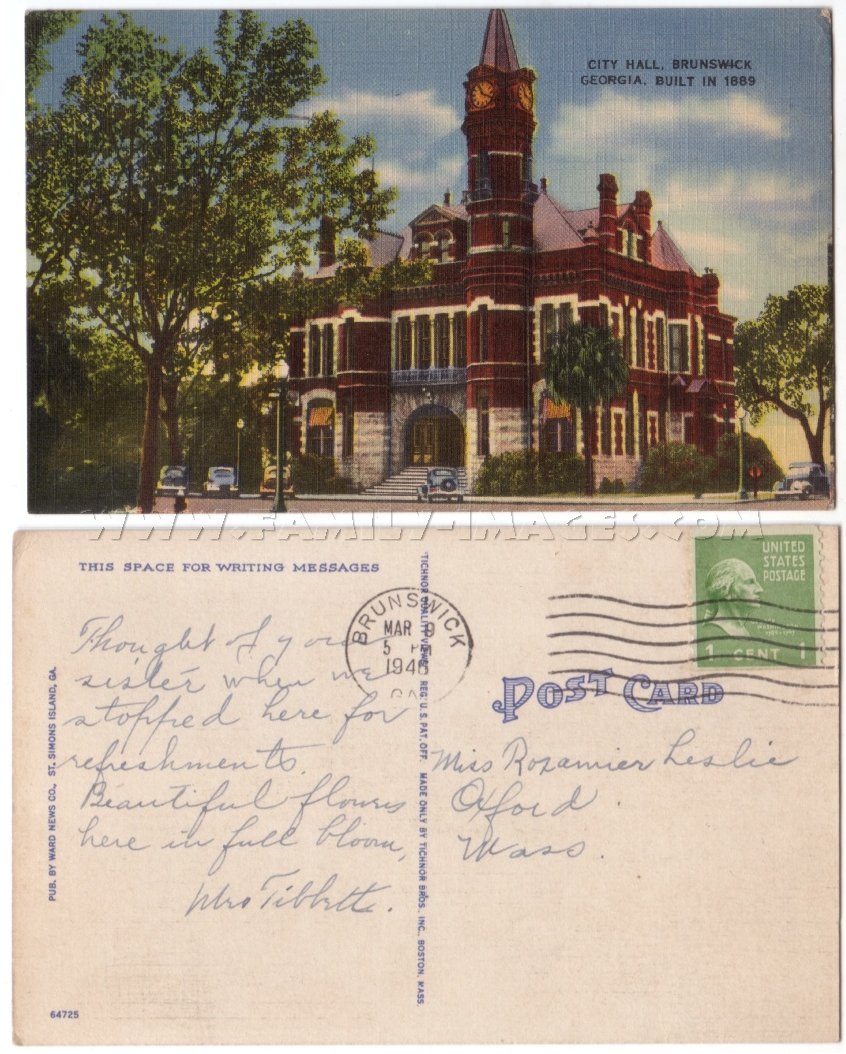 CITY HALL, BRUNSWICK
GEORGIA. BUILT IN 1889
WWW.FAMILY-IMAGES.COM
THIS SPACE FOR WRITING MESSAGES
Thought of your
sister when we
stopped here for
refreshments.
Beautiful flowers
here in full bloom,
Mrs Tibbett.
PUB. BY WARD NEWS CO., ST. SIMONS ISLAND, GA.
64725
TICHNOR QUALITY VIEWS REG. U. S. PAT. OFF. MADE ONLY BY TICHNOR BROS. INC., BOSTON, MASS.
BRUNSWICK
MAR 9
5 PM
GA
UNITED
STATES
POSTAGE
1 CENT 1
POST CARD
Miss Rozamier Leslie
Oxford
Mass.